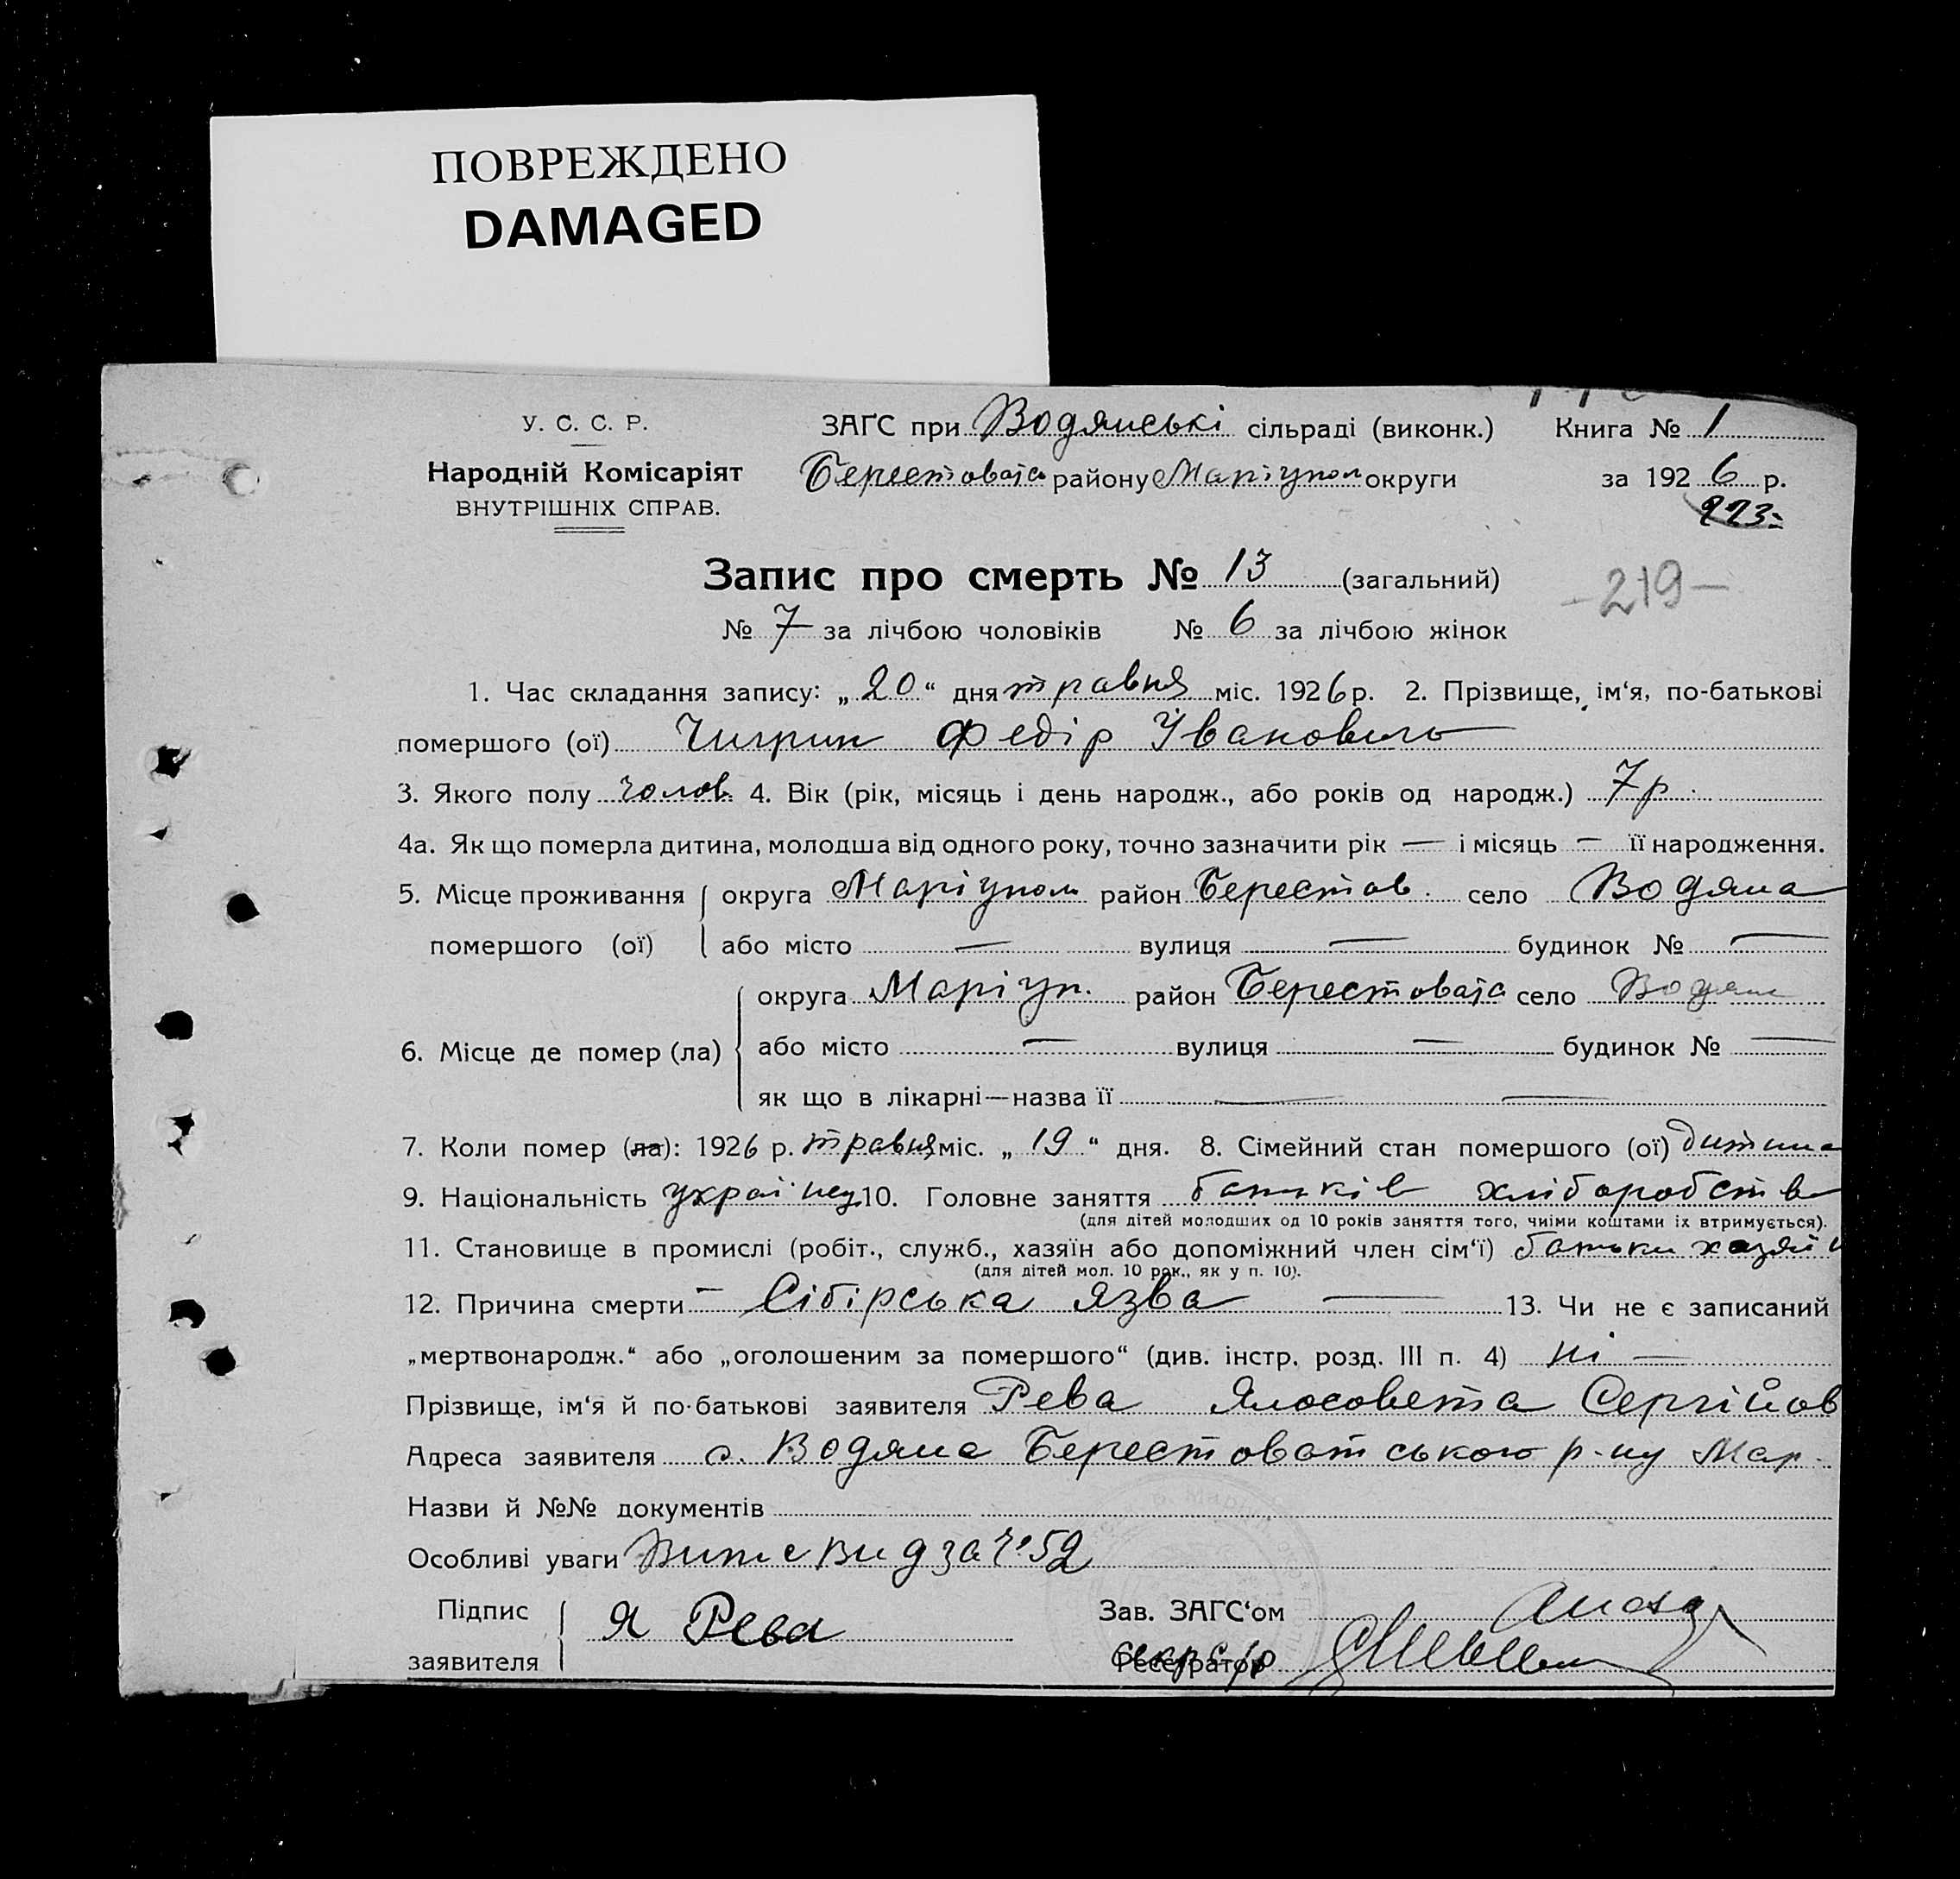 ПОВРЕЖДЕНО
DAMAGED
У. С. С. Р.
Народній Комісаріят
ВНУТРІШНІХ СПРАВ.
ЗАГС при Водянські сільраді (виконк.) Книга № 1
району Маріупол округи за 1926 р.
Запис про смерть № 13 (загальний)
-219-
№ 7 за лічбою чоловіків № 6 за лічбою жінок
1. Час складання запису: „20“ дня травня міс. 1926 р. 2. Прізвище, ім‘я, по-батькові
помершого (ої) Чигрин Федір Іванович
3. Якого полу чолов. 4. Вік (рік, місяць і день народж., або років од народж.) 7 р.
4а. Як що померла дитина, молодша від одного року, точно зазначити рік — і місяць — її народження.
5. Місце проживання округа Маріупол район Берестов. село Водяна
помершого (ої) або місто — вулиця — будинок № —
округа Маріуп. район село Водян
6. Місце де помер (ла) або місто — вулиця — будинок № —
як що в лікарні—назва її — —
7. Коли помер (ла): 1926 р. травня міс. „19“ дня. 8. Сімейний стан помершого (ої) дитина
9. Національність українец 10. Головне заняття батьків хліборобств
(для дітей молодших од 10 років заняття того, чиїми коштами їх втримується).
11. Становище в промислі (робіт., служб., хазяїн або допоміжний член сім‘ї) батьки хазяїн
(для дітей мол. 10 рок., як у п. 10).
12. Причина смерти — Сібірська язва — 13. Чи не є записаний
„мертвонародж.“ або „оголошеним за помершого“ (див. інстр. розд. III п. 4) ні —
Прізвище, ім‘я й по-батькові заявителя Рева Ялосовета Сергійов
Адреса заявителя с. Водяна Берестоватського р-ну Мар.
Назви й №№ документів
Особливі уваги за № 52
Підпис Я Рева Зав. ЗАГС‘ом
заявителя секр с/р Реєстратор